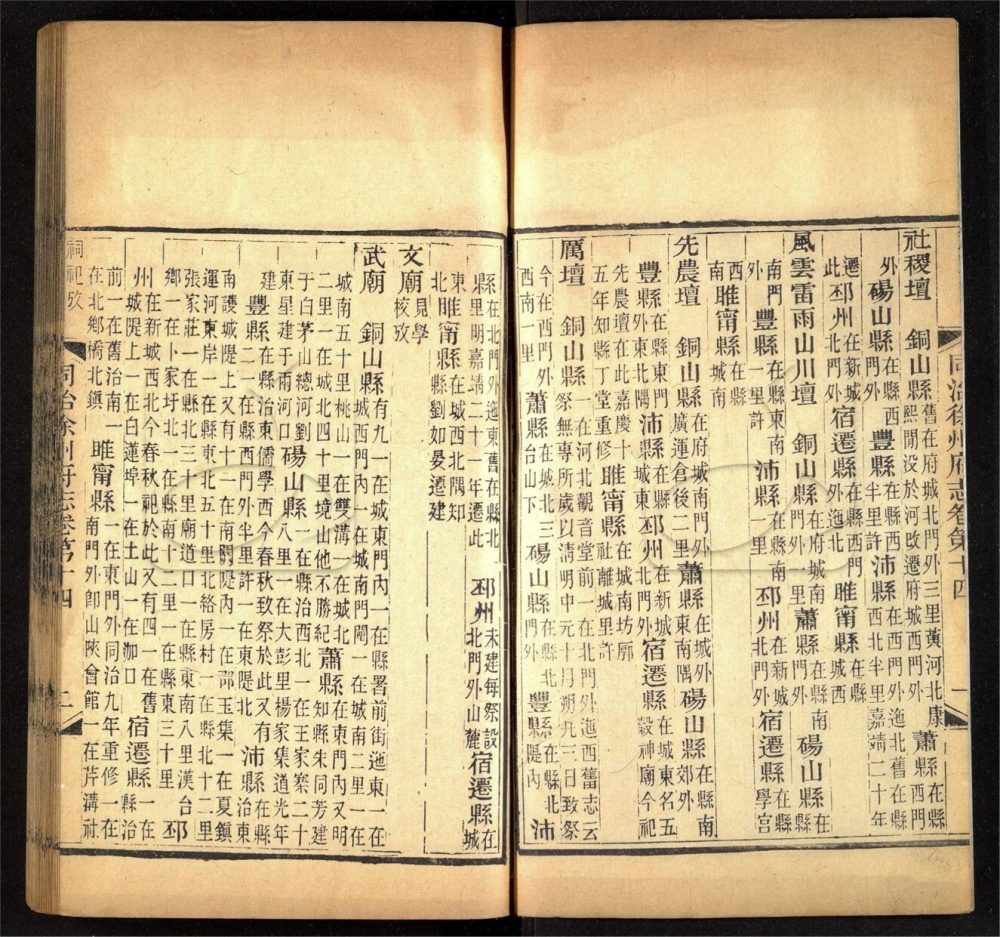 同治徐州府志卷第十四 一
社稷壇 銅山縣 舊在府城北門外三里黄河北康熙閒没於河改遷府城西門外 蕭縣 在縣西門
外 碭山縣 在縣西門外 豐縣 在縣西門外半里許 沛縣 在西門外迤北舊在縣西北半里嘉靖二十年
遷此 邳州 在新城北門外 宿遷縣 在縣西門外迤北 睢甯縣 在縣城西
風雲雷雨山川壇 銅山縣 在府城南門外一里 蕭縣 在縣南門外 碭山縣 在縣
南門外 豐縣 在縣東南一里許 沛縣 在縣南一里 邳州 在新城北門外 宿遷縣 在縣學宮
西南 睢甯縣 在縣城南
先農壇 銅山縣 在府城南門外廣運倉後二里 蕭縣 在城外東南隅 碭山縣 在縣南郊外
豐縣 在縣東門外東北隅 沛縣 在縣城東 邳州 在新城北門外 宿遷縣 在城東名五穀神廟今祀
先農壇在此嘉慶十五年知縣丁堂重修 睢甯縣 在城南坊廓社離城里許
厲壇 銅山縣 一在河北觀音堂前一在北門外迤西舊志云祭無專所歲以清明中元十月朔九三日致祭
今在西門外西南一里 蕭縣 在城北三里台山下 碭山縣 在縣北門外 豐縣 在縣北隄內 沛
縣 在北門外迤東舊在縣北里明嘉靖二十一年遷此 邳州 未建每祭設北門外山麓 宿遷縣 在城
東北 睢甯縣 在城西北隅知縣劉如晏遷建
文廟 見學校攷
武廟 銅山縣 有九一在城東門內一在縣署前街迤東一在城西門內一在城南門閣一在城南二里一在
城南五十里桃山一在雙溝一在城北二里一在城北四十里境山他不勝紀 蕭縣 在東門內又明知縣朱同芳建
于白茅山總河劉東星建于兩河口 碭山縣 一在縣治西北一在王家寨二十八里一在大彭里楊家集道光年
建 豐縣 在縣治東儒學西今春秋致祭於此又有二一在縣西門外半里許一在東隄北 沛縣 在縣治東
南護城隄上又有十一一在南關隄內一在鄗玉集一在夏鎮運河東岸一在縣東北五十里北絡房村一在縣北十二里
張家莊一在縣北三十里廟道口一在縣東南八里漢台鄉一在卜家圩一在縣南十二里一在縣東三十里 邳
州 在新城西北今春秋祀於此又有四一在舊城隄上一在白蓮埠一在土山一在泇口 宿遷縣 一在縣治
前一在舊治南一在北鄉橋北鎮 睢甯縣 一在東門外同治九年重修一在南門外卽山陝會館一在芹溝社
祠祀攷
同治徐州府志卷第十四 二